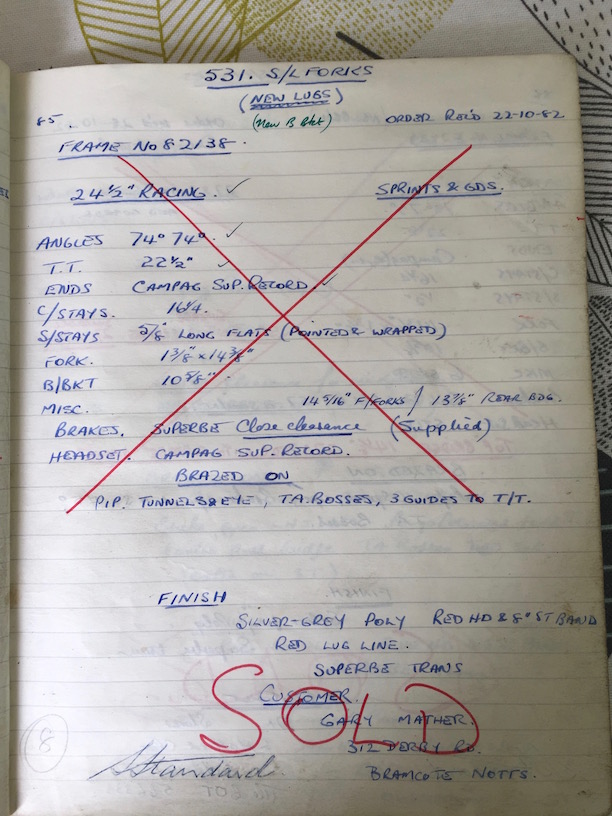 531. S/L FORKS
(NEW LUGS)
85. (New B Bkt) ORDER REC'D 22-10-82
FRAME No 82138.
24½" RACING. ✓ SPRINTS & GDS.
ANGLES 74° 74°. ✓
T.T. 22½" ✓
ENDS CAMPAG SUP. RECORD. ✓
C/STAYS. 16¼.
S/STAYS 5/8" LONG FLATS (POINTED & WRAPPED)
FORK. 1 3/8" x 14 3/8"
B/BKT 10 5/8"
MISC. 14 5/16" F/FORKS / 13 7/8" REAR BDG.
BRAKES. SUPERBE Close clearence (Supplied)
HEADSET. CAMPAG SUP. RECORD.
BRAZED ON
P/P. TUNNELS & EYE, T.A. BOSSES, 3 GUIDES TO T/T.
FINISH
SILVER-GREY POLY RED HD & 8" ST BAND
RED LUG LINE.
SUPERBE TRANS
CUSTOMER.
SOLD
GARY MATHER.
312 DERBY RD.
BRAMCOTE NOTTS.
8
Standard